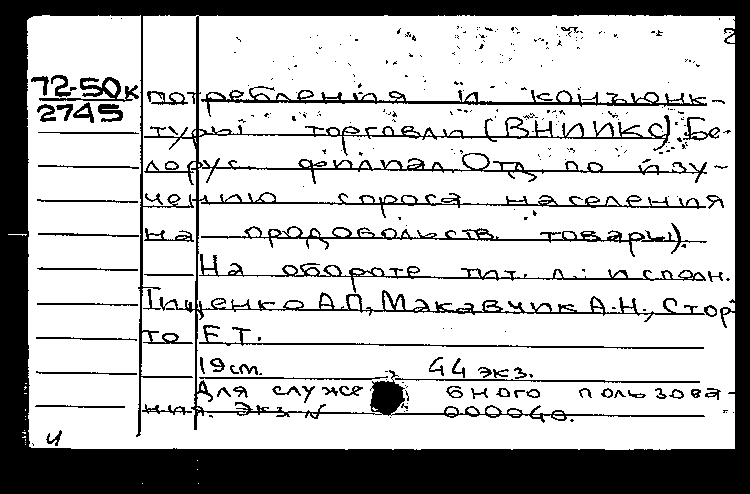 2
72-50к
2745
потребления и конъюнк-
туры торговли (ВНИИКС). Бе-
лорус. филиал. Отд. по изу-
чению спроса населения
на продовольств. товары).
На обороте тит. л.: исполн.
Тищенко А.П., Макавчик А.Н., Стор
то Е.Т.
19 ст. 44 экз.
Для служебного пользова-
ния. Экз. N 000040.
и